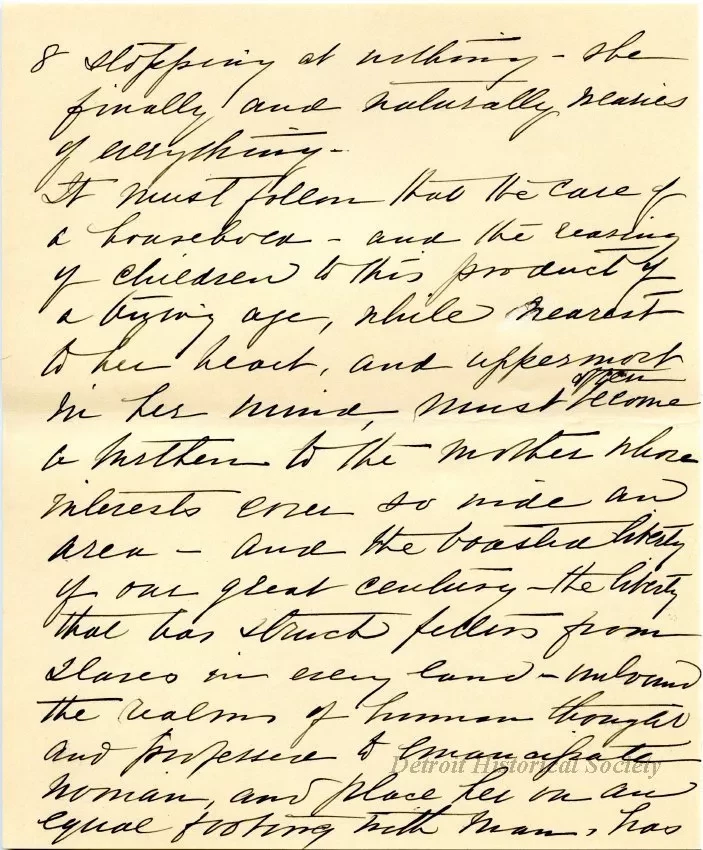 8 stopping at nothing - she
finally and naturally wearies
of everything -
It must follow that the care of
a household - and the rearing
of children to this product of
a trying age, while nearest
to her heart, and uppermost
often
in her mind, must become
a burthen to the mother whose
interests cover so wide an
area - and the boasted liberty
of our great century - the liberty
that has struck fetters from
slaves in every land - unbound
the realms of human thought
and professed to emancipate
Detroit Historical Society
woman, and place her on an
equal footing with man, has